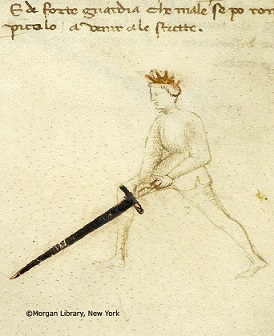 E de forte guardia che male se po
a venir ale strette.
©Morgan Library, New York